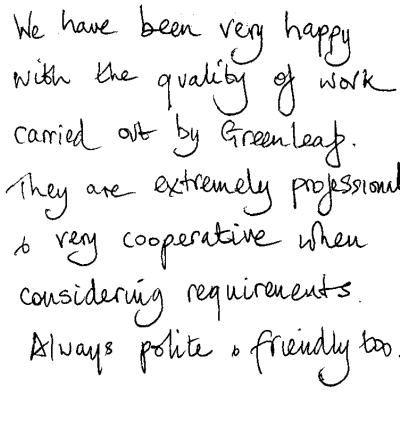 We have been very happy
with the quality of work
carried out by Greenleaf.
They are extremely professional
& very cooperative when
considering requirements.
Always polite & friendly too.